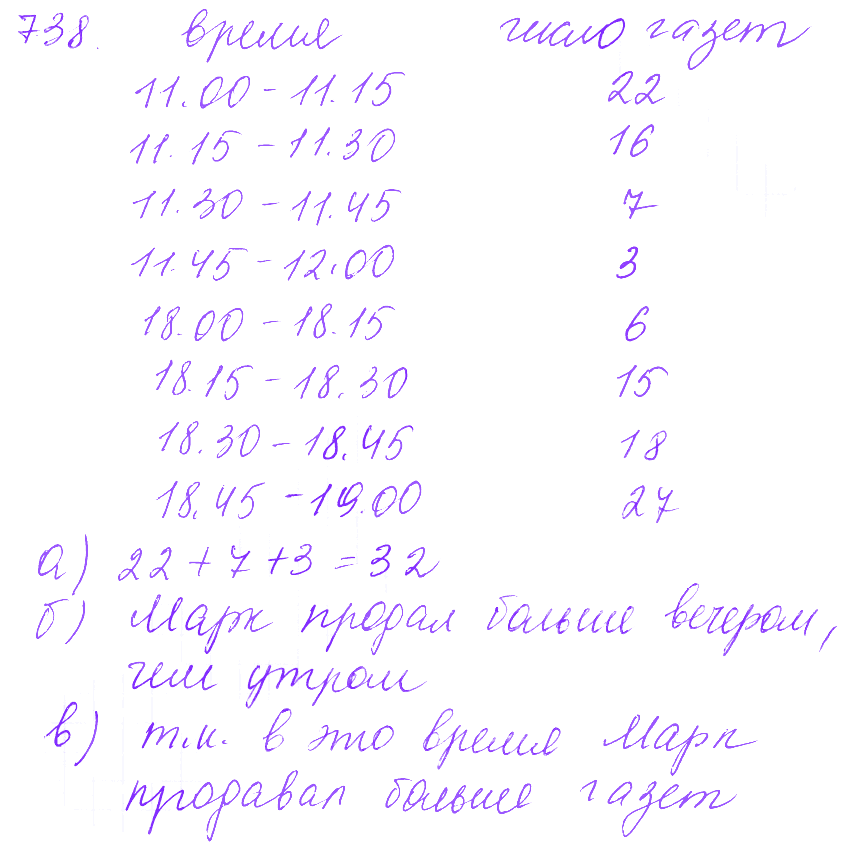 738. время число газет
11.00 - 11.15 22
11.15 - 11.30 16
11.30 - 11.45 7
11.45 - 12.00 3
18.00 - 18.15 6
18.15 - 18.30 15
18.30 - 18.45 18
18.45 - 19.00 27
а) 22 + 7 + 3 = 32
б) Марк продал больше вечером,
чем утром
в) т.к. в это время Марк
продавал больше газет